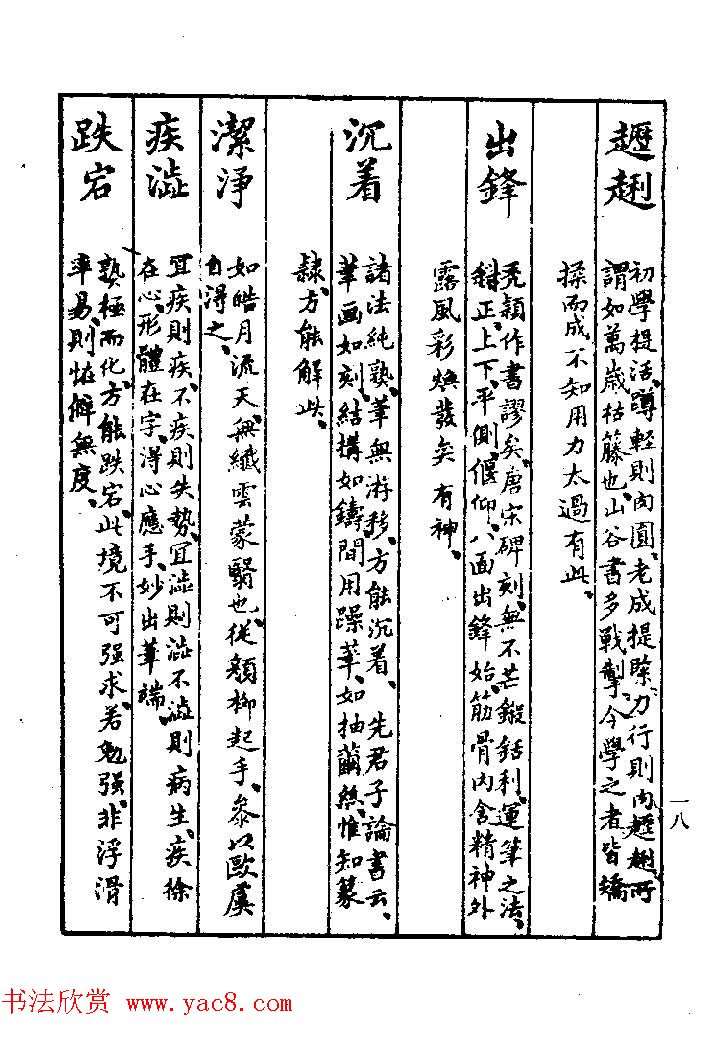 趲趔
初學提活蹲輕則肉圓、老成提䠞力行則肉趲趔所
謂如萬歲枯籐也、山谷書多戰掣、今學之者皆矯
揉而成不知用力太過有此、
出鋒
禿穎作書謬矣、唐宋碑刻、無不芒鎩銛利、運筆之法、
斜正、上下、平側、偃仰、八面出鋒、始筋骨內含精神外
露風彩煥發矣 有神、
沉着
諸法純熟、筆無游移、方能沉着、先君子論書云、
筆画如刻、結搆如鑄間用躁筆、如抽繭絲、惟知篆
隸、方能解此、
潔淨
如皓月流天、無纖雲蒙翳也、從顏柳起手、叅以歐虞
自得之、
疾澁
宜疾則疾、不疾則失勢、宜澁則澁不澁則病生、疾徐
在心、形體在字、得心應手、妙出筆端、
跌宕
熟極而化、方能跌宕、此境不可强求、若勉强、非浮滑
率易、則恠僻無度、
一八
书法欣赏 www.yac8.com